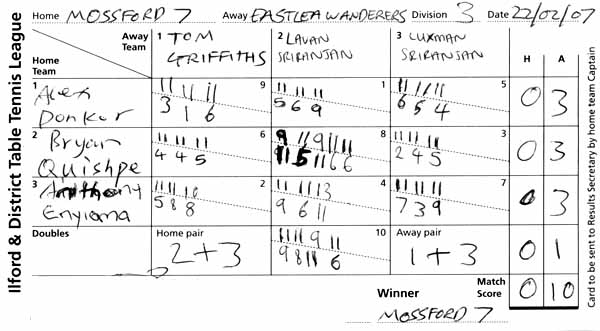 Ilford & District Table Tennis League
Home MOSSFORD 7 Away EASTLEA WANDERERS Division 3 Date 22/02/07
Away Team
Home Team
1 TOM GRIFFITHS
2 LAVAN SRIRANJAN
3 LUXMAN SRIRANJAN
H A
1 Alex Donkor
9
11 11 11
3 1 6
1
11 11 11
5 6 9
5
11 11 11
6 5 4
0 3
2 Bryan Quishpe
6
11 11 11
4 4 5
8
9 11 9 11 11
11 5 11 6 6
3
11 11 11
2 4 5
0 3
3 Anthony Enyioma
2
11 11 10
5 8 8
4
11 11 13
9 6 11
7
11 11 11
7 3 9
0 3
Doubles
Home pair
2+3
10
11 11 9 11
9 8 11 6
Away pair
1+3
0 1
Winner
Match Score
0 10
MOSSFORD 7
Card to be sent to Results Secretary by home team Captain